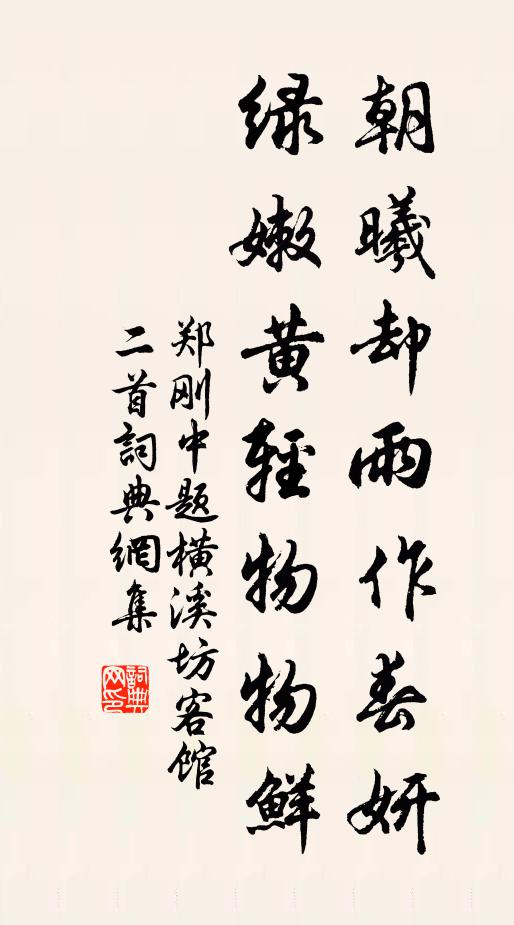 朝曦却雨作春妍
绿嫩黄轻物物鲜
郑刚中题横溪坊客馆
二首詞典網集
詞典网印